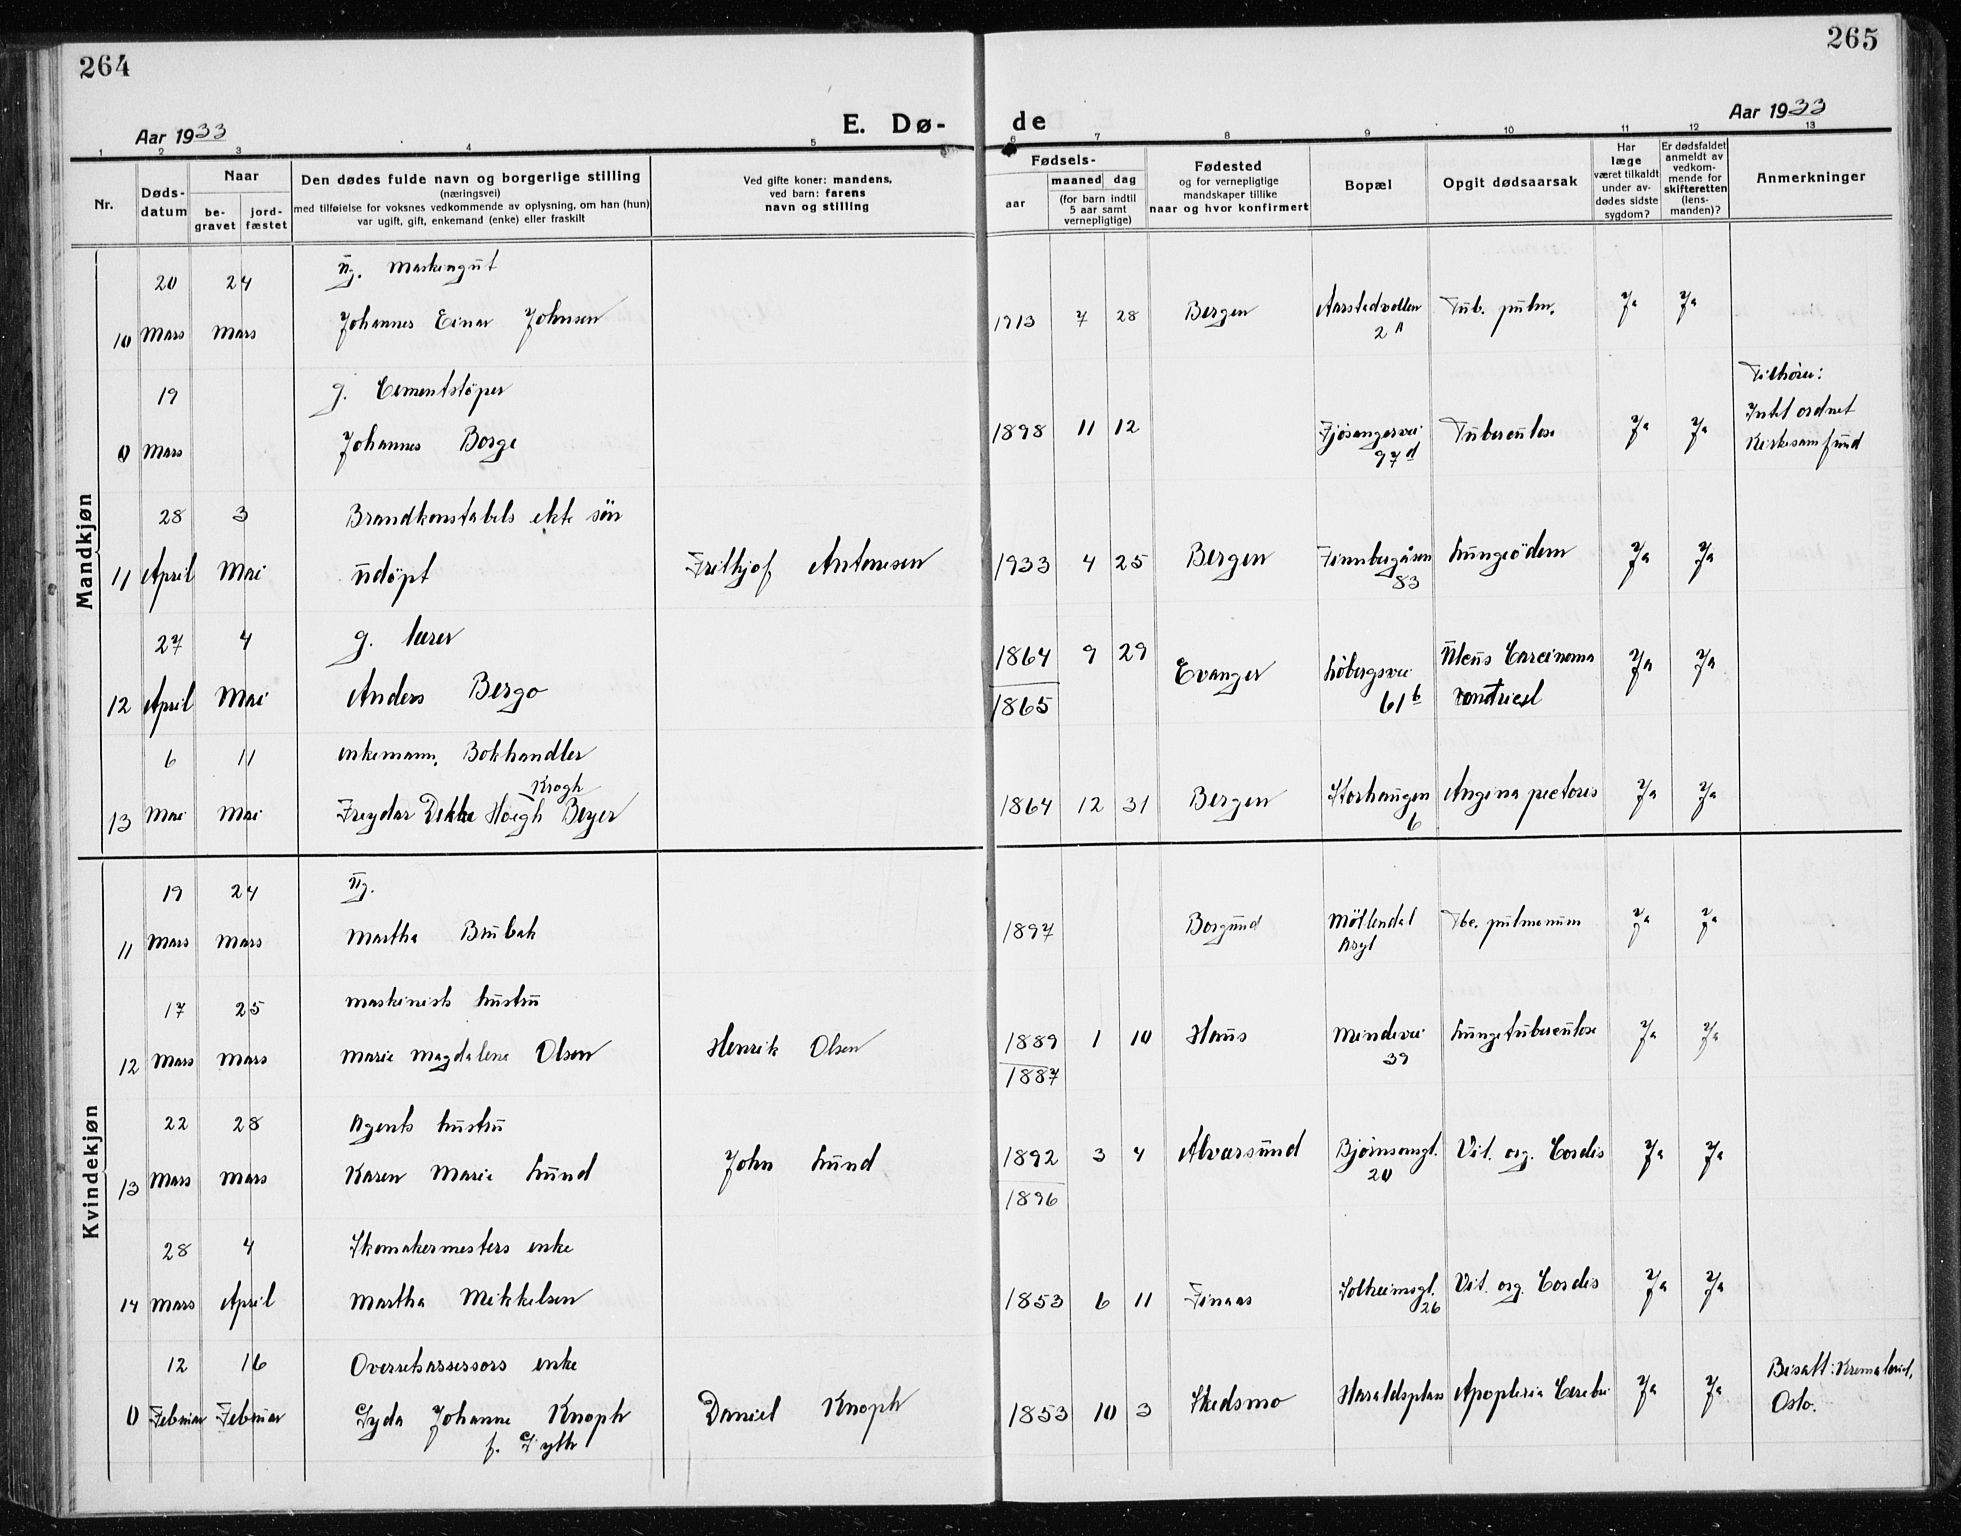 264
265
Aar 1933
E. Dø-
de
Aar 1933
1 2 3 4 5 6 7 8 9 10 11 12 13
Nr.
Døds-
datum
Naar
be-
gravet
jord-
fæstet
Den dødes fulde navn og borgerlige stilling
(næringsvei)
med tilføielse for voksnes vedkommende av oplysning, om han (hun)
var ugift, gift, enkemand (enke) eller fraskilt
Ved gifte koner: mandens,
ved barn: farens
navn og stilling
Fødsels-
aar
maaned dag
(for barn indtil
5 aar samt
vernepligtige)
Fødested
og for vernepligtige
mandskaper tillike
naar og hvor konfirmert
Bopæl
Opgit dødsaarsak
Har
læge
været tilkaldt
under av-
dødes sidste
sygdom?
Er dødsfaldet
anmeldt av
vedkom-
mende for
skifteretten
(lens-
manden)?
Anmerkninger
Mandkjøn
20 24 ug. Maskingut
10 Mars Mars Johannes Einar Johnsen 1913 7 28 Bergen Aarstadvollen 2A Tub. pulm. Ja Ja
19 g. Cementstöper
0 Mars Johannes Borge 1898 11 12 Fjösangervei 97d Tuberculose Ja Ja
Tilhörer:
Intet ordnet
Kirkesamfund
28 3 Brandkonstabels ekte sön
11 April Mai udöpt Frithjof Antonisen 1933 4 25 Bergen Finnbergåsen 83 Lungeödem Ja Ja
27 4 g. lærer
12 April Mai Anders Bergo 1864 9 29 Evanger Löbergsvei 61b Ulcus Carcinoma Ja Ja
1865
6 11 enkemann, Bokhandler
Krogh
13 Mai Mai Freydar Dekke Höegh Beyer 1864 12 31 Bergen Storhaugen 6 Angina pectoris Ja Ja
Kvindekjøn
19 24 ug.
11 Mars Mars Martha Brubak 1897 Borgund Möllendal Asyl Tbc. pulmonum Ja Ja
17 25 Maskinists hustru
12 Mars Mars Marie Magdalene Olsen Henrik Olsen 1889 1 10 Haus Mindevei 39 Lungetuberculose Ja Ja
1887
22 28 Agents hustru
13 Mars Mars Karen Marie Lund John Lund 1892 3 4 Alvarsund Bjørnsonsgt. 20 Vit. org. Cordis Ja Ja
1896
28 4 Skomakermesters enke
14 Mars April Martha Mikkelsen 1853 6 11 Finaas Solheimsgt. 26 Vit. org. Cordis Ja Ja
12 16 Overretsassessors enke
0 Februar Februar Gyda Johanne Knoph Daniel Knoph 1853 10 3 Skedsmo Haraldsplass Apoplexia Cerebri Ja Ja
f. Gyth
Bisatt: Krematoriet,
Oslo.